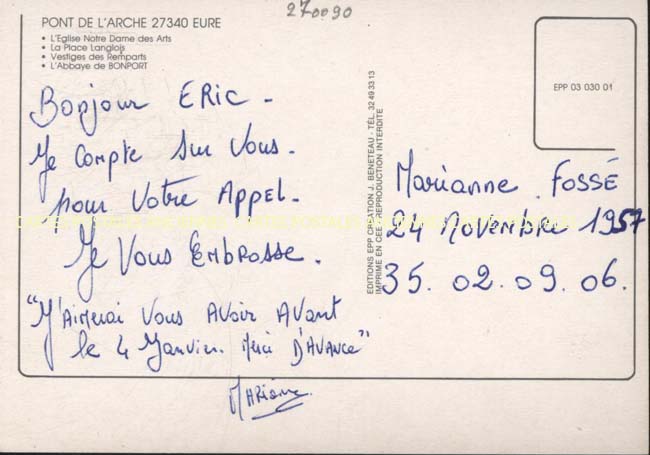 270090
PONT DE L'ARCHE 27340 EURE
• L'Eglise Notre Dame des Arts
• La Place Langlois
• Vestiges des Remparts
• L'Abbaye de BONPORT
EPP 03 030 01
Bonjour ERic -
Je Compte sur Vous.
pour Votre APPel.
Je Vous EmBrosse.
"J'Aimerai Vous AVoir AVant
le 4 Janvier. Merci D'AVance"
MARianne
EDITIONS EPP CREATION J. BENETEAU - TÉL. 32 49 33 13
IMPRIME EN CEE - REPRODUCTION INTERDITE
Marianne FOSSÉ
24 Novembre 1957
35. 02. 09. 06.